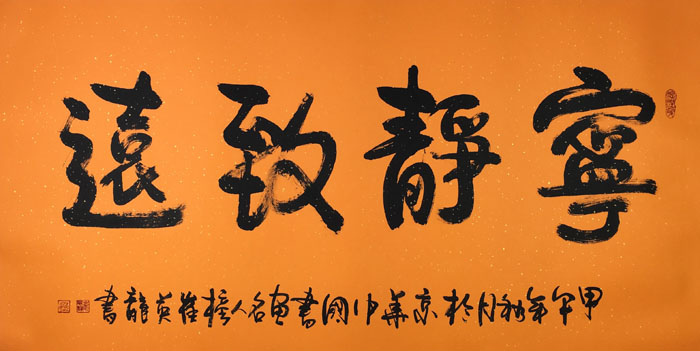 寧靜致遠
甲午年秋月於京華中國書畫名人榜崔英龍書